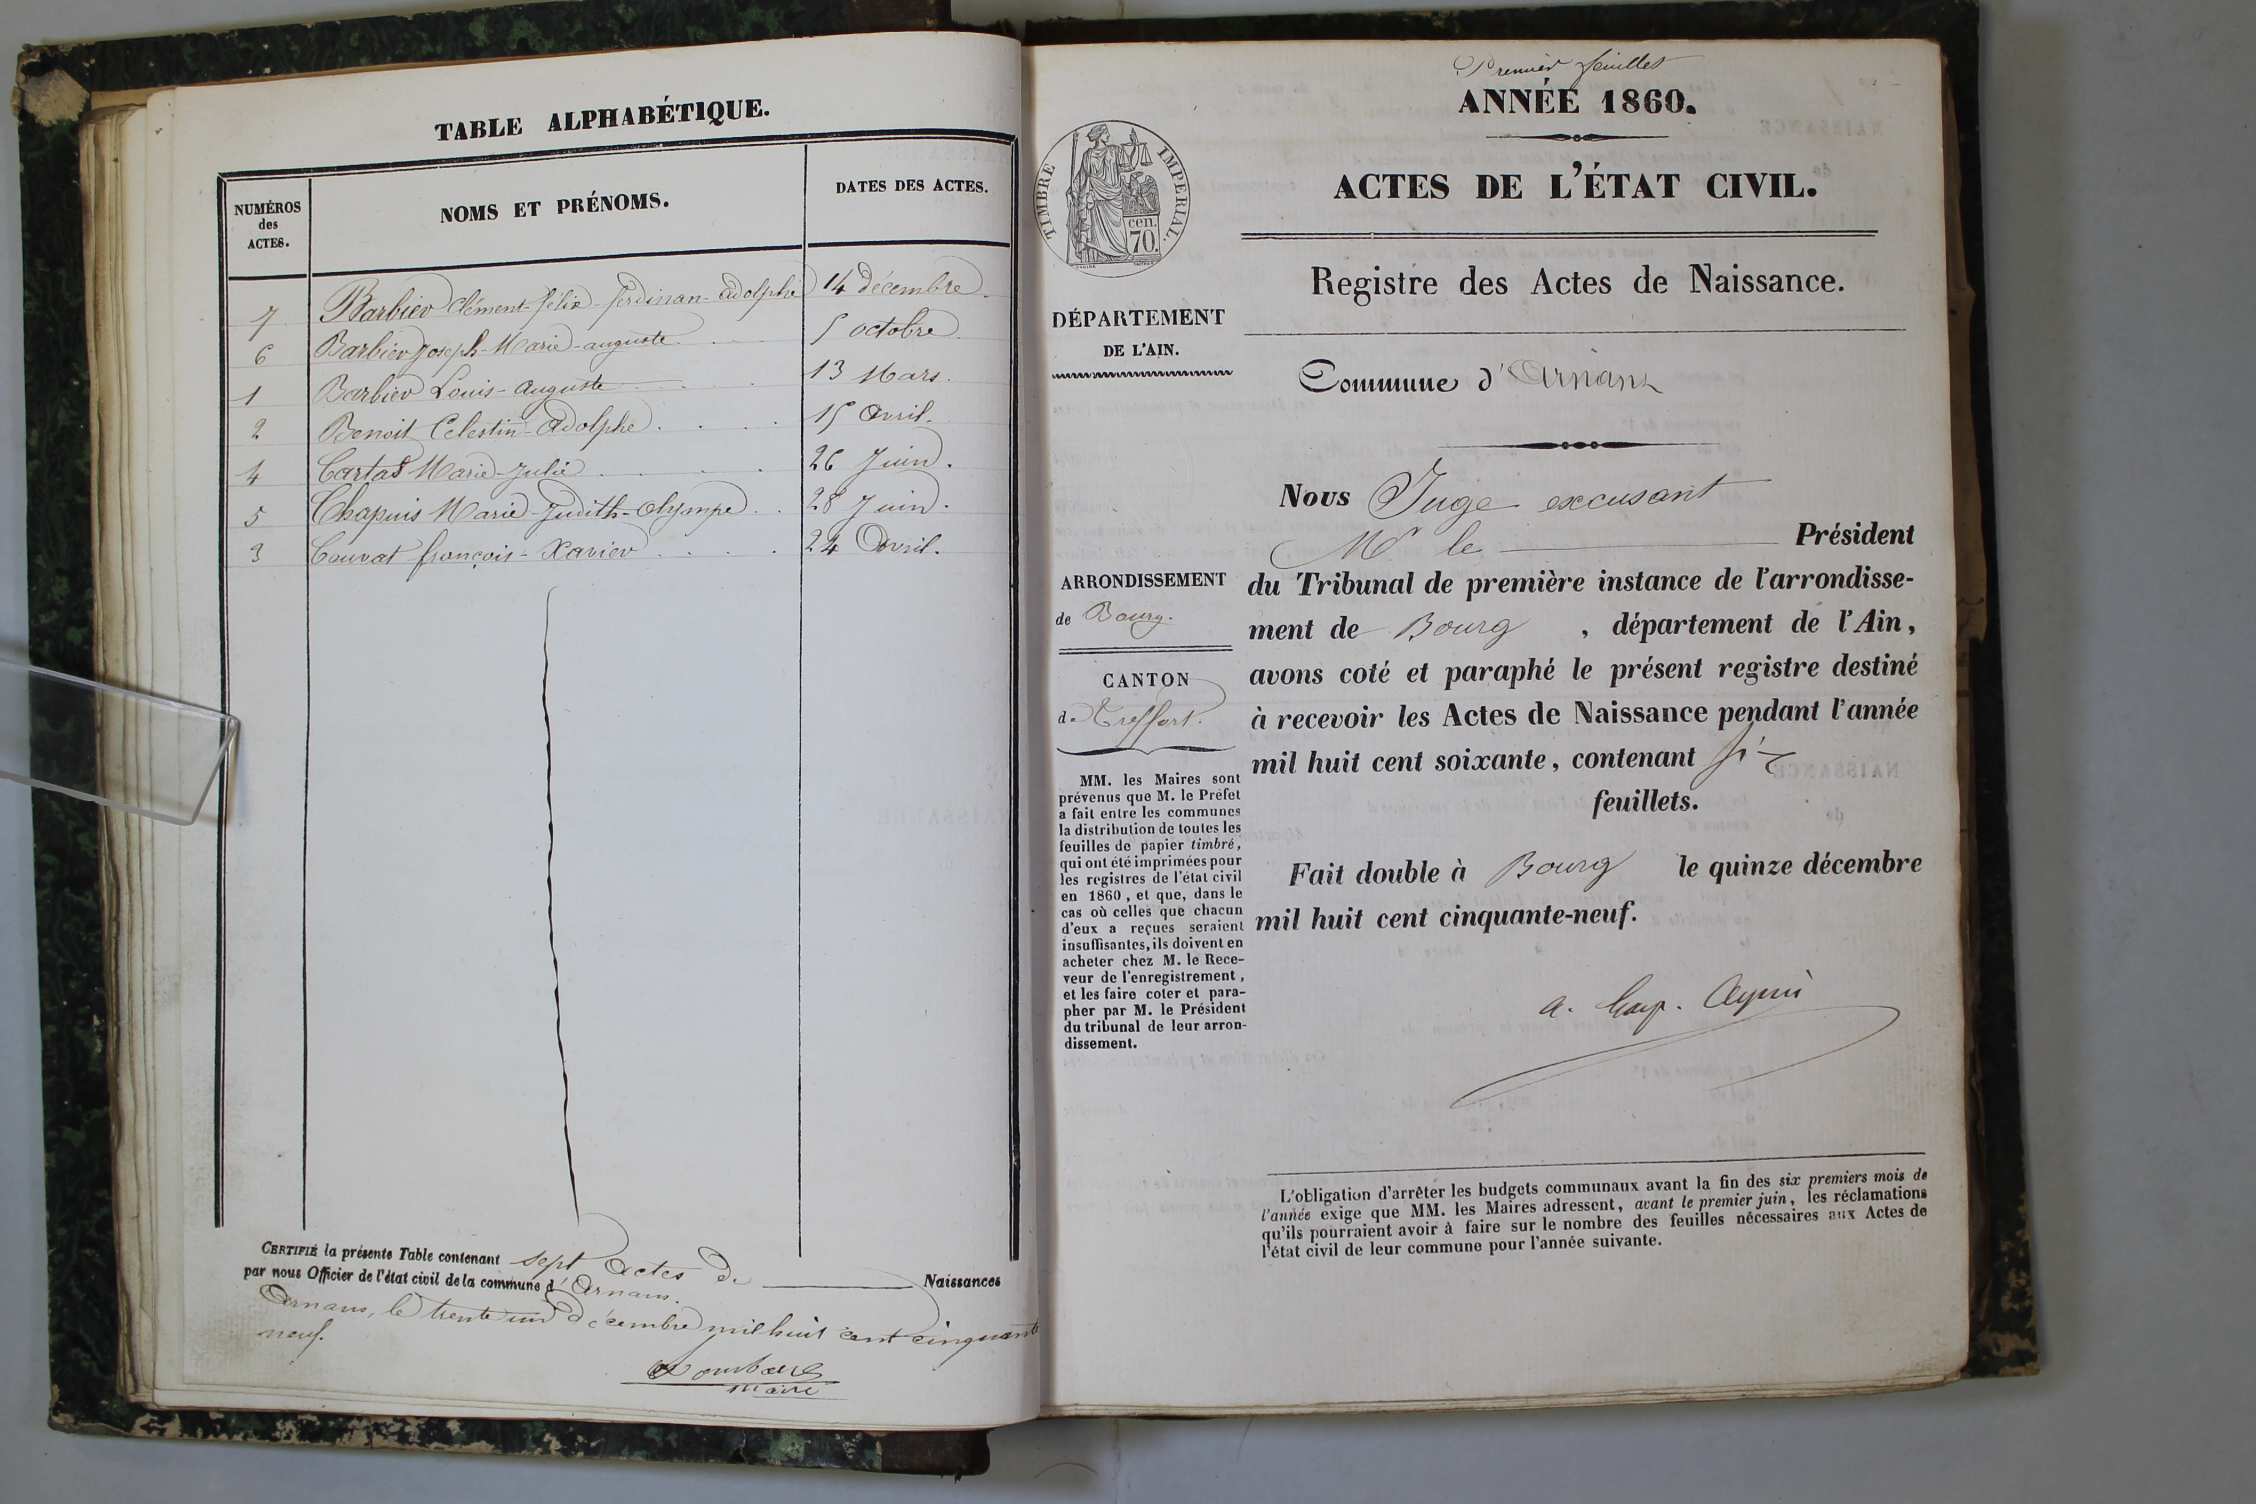 TABLE ALPHABÉTIQUE.
NUMÉROS
des
ACTES.
NOMS ET PRÉNOMS.
DATES DES ACTES.
7 Barbier Clément-félix-ferdinan-adolphe 14 décembre.
6 Barbier Joseph-Marie-auguste 5 octobre
1 Barbier Louis-auguste 13 Mars.
2 Benoit Celestin-Adolphe. 15 Avril.
4 Cartas Marie-Julie 26 Juin.
5 Chapuis Marie-Judith-olympe. 28 Juin.
3 Couvat françois-Xavier 24 Avril.
CERTIFIÉ la présente Table contenant sept Actes de Naissances
par nous Officier de l'état civil de la commune d'Arnans.
Arnans, le trente un décembre mil huit cent cinquante
neuf.
maire
Premier feuillet
ANNÉE 1860.
TIMBRE IMPERIAL.
cen.
70.
ACTES DE L'ÉTAT CIVIL.
Registre des Actes de Naissance.
DÉPARTEMENT
DE L'AIN.
Commune d'Arnans
ARRONDISSEMENT
de Bourg.
CANTON
de Treffort.
MM. les Maires sont
prévenus que M. le Préfet
a fait entre les communes
la distribution de toutes les
feuilles de papier timbré,
qui ont été imprimées pour
les registres de l'état civil
en 1860, et que, dans le
cas où celles que chacun
d'eux a reçues seraient
insuffisantes, ils doivent en
acheter chez M. le Rece-
veur de l'enregistrement,
et les faire coter et para-
pher par M. le Président
du tribunal de leur arron-
dissement.
Nous Juge excusant
Mr le Président
du Tribunal de première instance de l'arrondisse-
ment de Bourg, département de l'Ain,
avons coté et paraphé le présent registre destiné
à recevoir les Actes de Naissance pendant l'année
mil huit cent soixante, contenant six
feuillets.
Fait double à Bourg le quinze décembre
mil huit cent cinquante-neuf.
L'obligation d'arrêter les budgets communaux avant la fin des six premiers mois de
l'année exige que MM. les Maires adressent, avant le premier juin, les réclamations
qu'ils pourraient avoir à faire sur le nombre des feuilles nécessaires aux Actes de
l'état civil de leur commune pour l'année suivante.